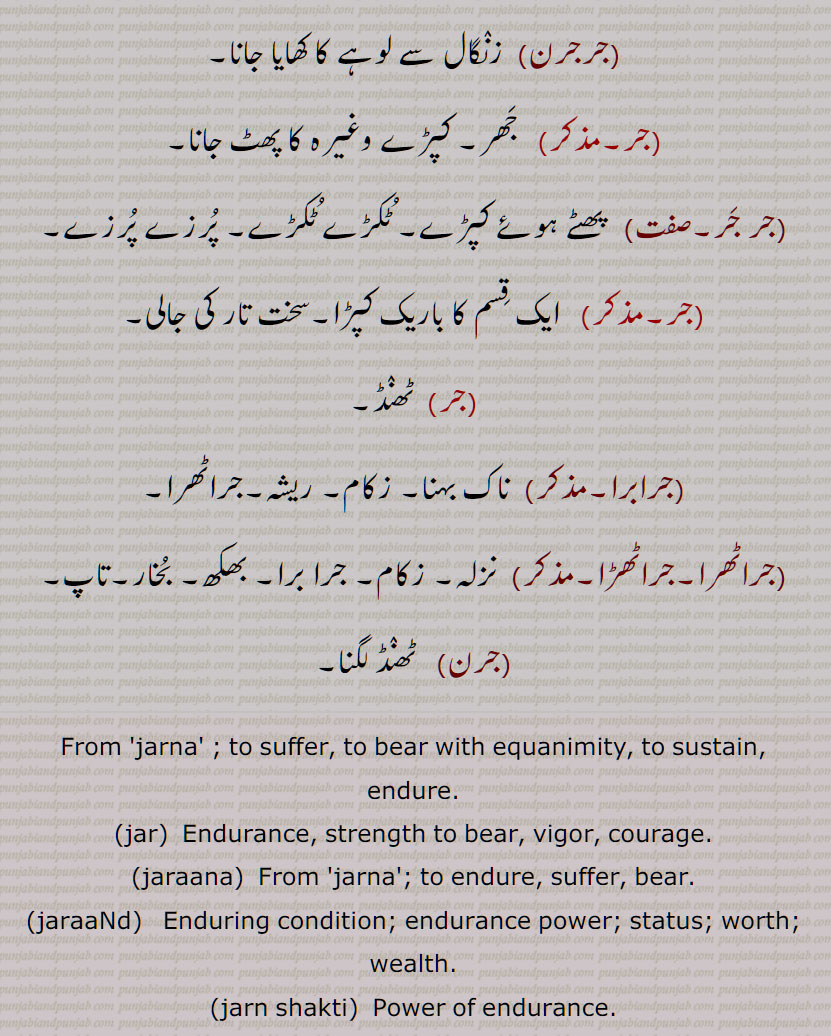 (جرجرن) زنگال سے لوہے کا کھایا جانا۔
(جر۔مذکر) جَھر۔ کپڑے وغیرہ کا پھٹ جانا۔
(جر جَر۔صفت) پھٹے ہوئے کپڑے۔ ٹُکڑے ٹُکڑے۔ پُرزے پُرزے۔
(جر۔مذکر) ایک قِسم کا باریک کپڑا۔سخت تار کی جالی۔
(جر) ٹھنڈ۔
(جرابرا۔مذکر) ناک بہنا۔ زکام۔ ریشہ۔جراٹھرا۔
(جراٹھرا۔جراٹھڑا۔مذکر) نزلہ۔ زکام۔ جرا برا۔ بھکھ۔ بُخار۔تاپ۔
(جرن) ٹھنڈ لگنا۔
From 'jarna' ; to suffer, to bear with equanimity, to sustain,
endure.
(jar) Endurance, strength to bear, vigor, courage.
(jaraana) From 'jarna'; to endure, suffer, bear.
(jaraaNd) Enduring condition; endurance power; status; worth;
wealth.
(jarn shakti) Power of endurance.